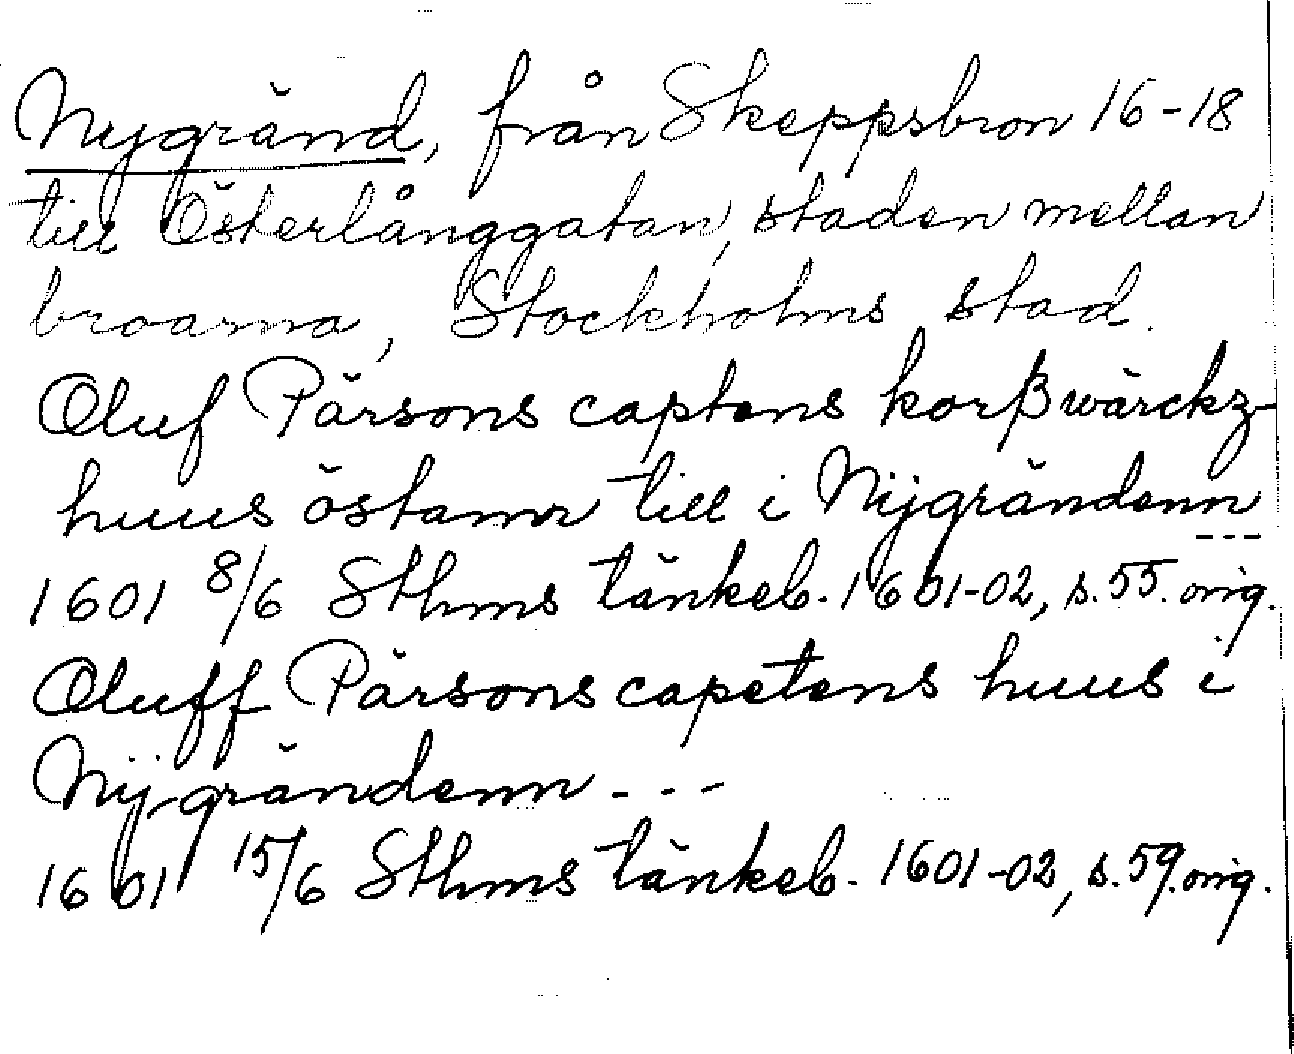 Nygränd, från Skeppsbron 16-18
till Österlånggatan, staden mellan
broarna, Stockholms stad.
Oluf Pärsons captens korßwärckz-
huus östann till i Nijgrändenn
---
1601 8/6 Sthms tänkeb. 1601-02, s. 55. orig.
Oluff Pärsons capetens huus i
Nÿgrändenn ---
1601 15/6 Sthms tänkeb. 1601-02, s. 59. orig.